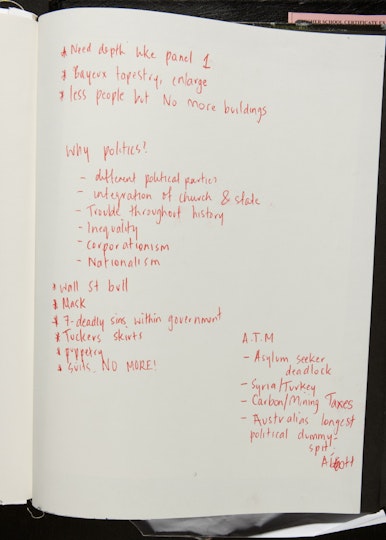 HER SCHOOL CERTIFICATE EX
* Need depth like panel 1.
* Bayeux tapestry, enlarge
* less people but No more buildings
Why politics?
- different political parties
- integration of church & state
- Trouble throughout history
- Inequality
- corporationism
- Nationalism
* Wall St bull
* Mask
* 7-deadly sins within government
* Tuckers skirts
* puppetry
* suits. NO MORE!
A.T.M
- Asylum seeker
deadlock
- Syria/Turkey
- Carbon/Mining Taxes
- Australias longest
political dummy-
spit
Abbott